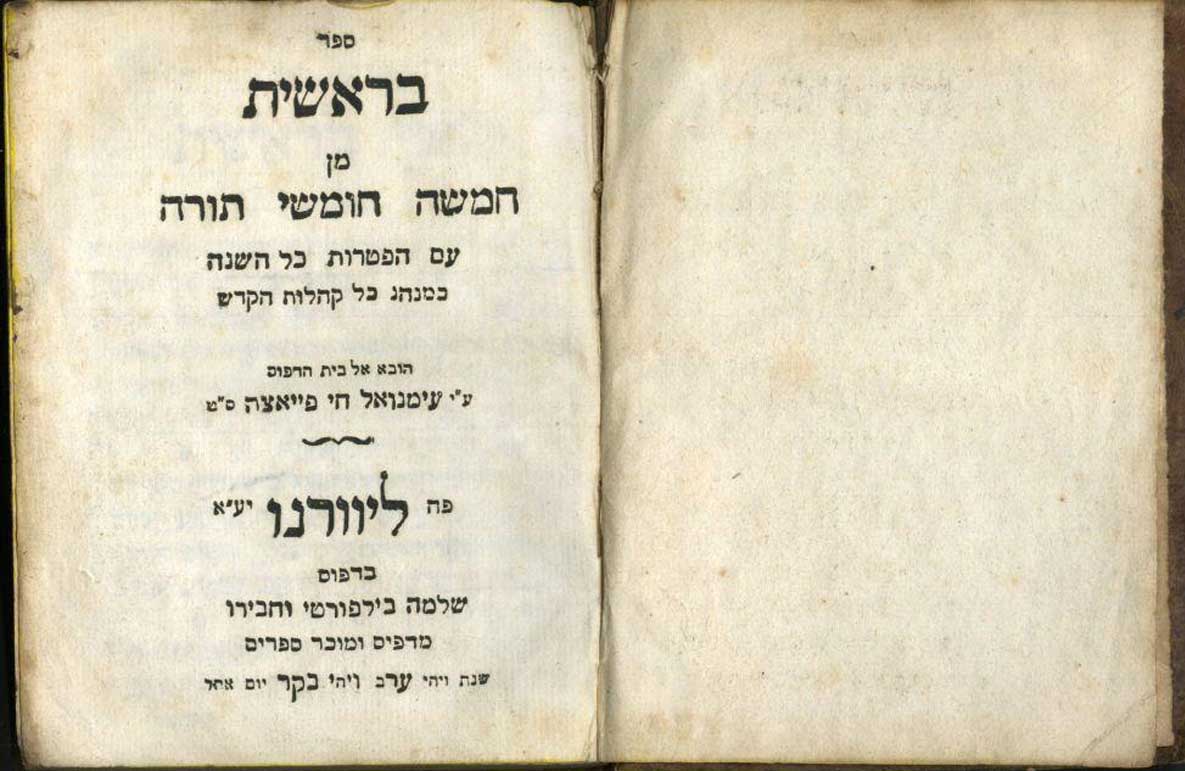 ספר
בראשית
מן
חמשה חומשי תורה
עם הפטרות כל השנה
כמנהג כל קהלות הקדש
הובא אל בית הדפוס
ע"י עימנואל חי פייאצה ס"ט
פה ליוורנו יע"א
בדפוס
שלמה בילפורטי וחבירו
מדפיס ומוכר ספרים
שנת ויהי ערב ויהי בקר יום אחד